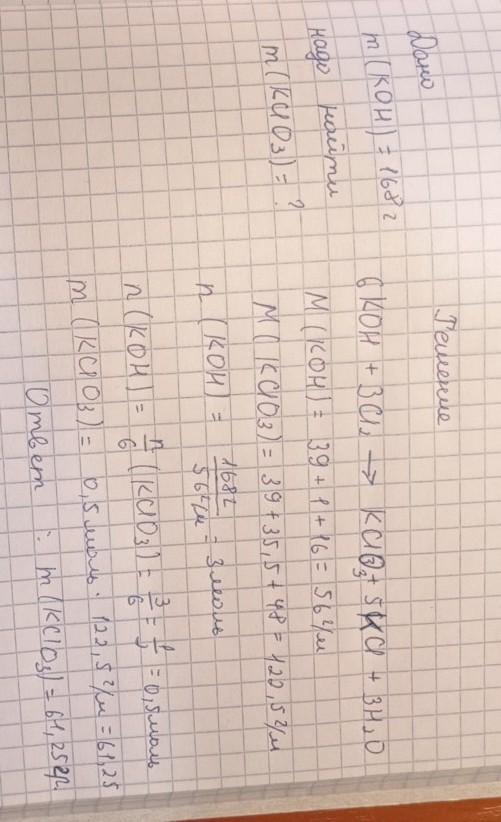 Дано
m(KOH) = 168г
надо найти
m(KClO3) = ?
Решение
6KOH + 3Cl₂ → KClO₃ + 5KCl + 3H₂O
M(KOH) = 39 + 1 + 16 = 56г/м
M(KClO3) = 39 + 35,5 + 48 = 120,5г/м
n(KOH) = 168г/56г/м = 3моль
n(KOH) = n/6 (KClO3) = 3/6 = = 0,5моль
m(KClO3) = 0,5моль · 122,5г/м = 61,25
Ответ : m(KClO3) = 61,25гр.